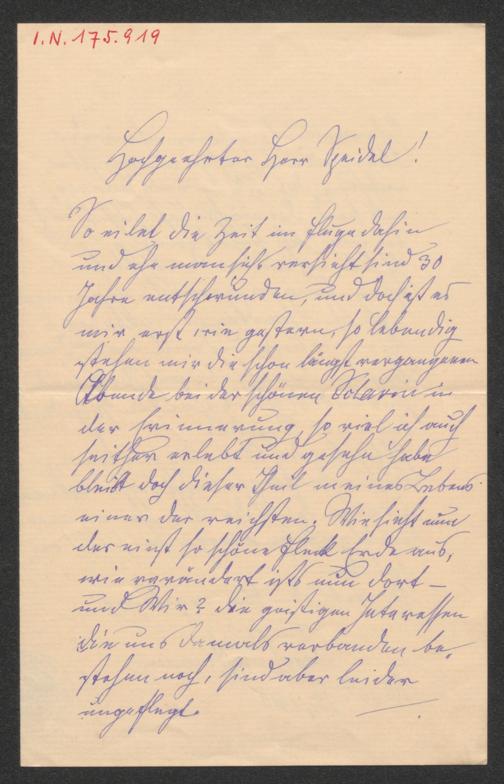 I.N. 175.919
Hochgeehrter Herr Speidel!
So eilet die Zeit im Fluge dahin
und ehe man sichs versieht sind 30
Jahre entschwunden, und doch ist es
mir erst wie gestern, so lebendig
stehen mir die schon längst vergangenen
Abende bei der schönen in
der Erinnerung, so viel ich auch
seither erlebt und gesehn habe
bleibt doch dieser Theil meines Lebens
einer der reichsten. Wie sieht nun
der einst so schöne Fleck Erde aus,
wie verändert ists nun dort –
und Wir? die geistigen Interessen
die uns damals verbanden be-
stehen noch, sind aber leider
ungepflegt.